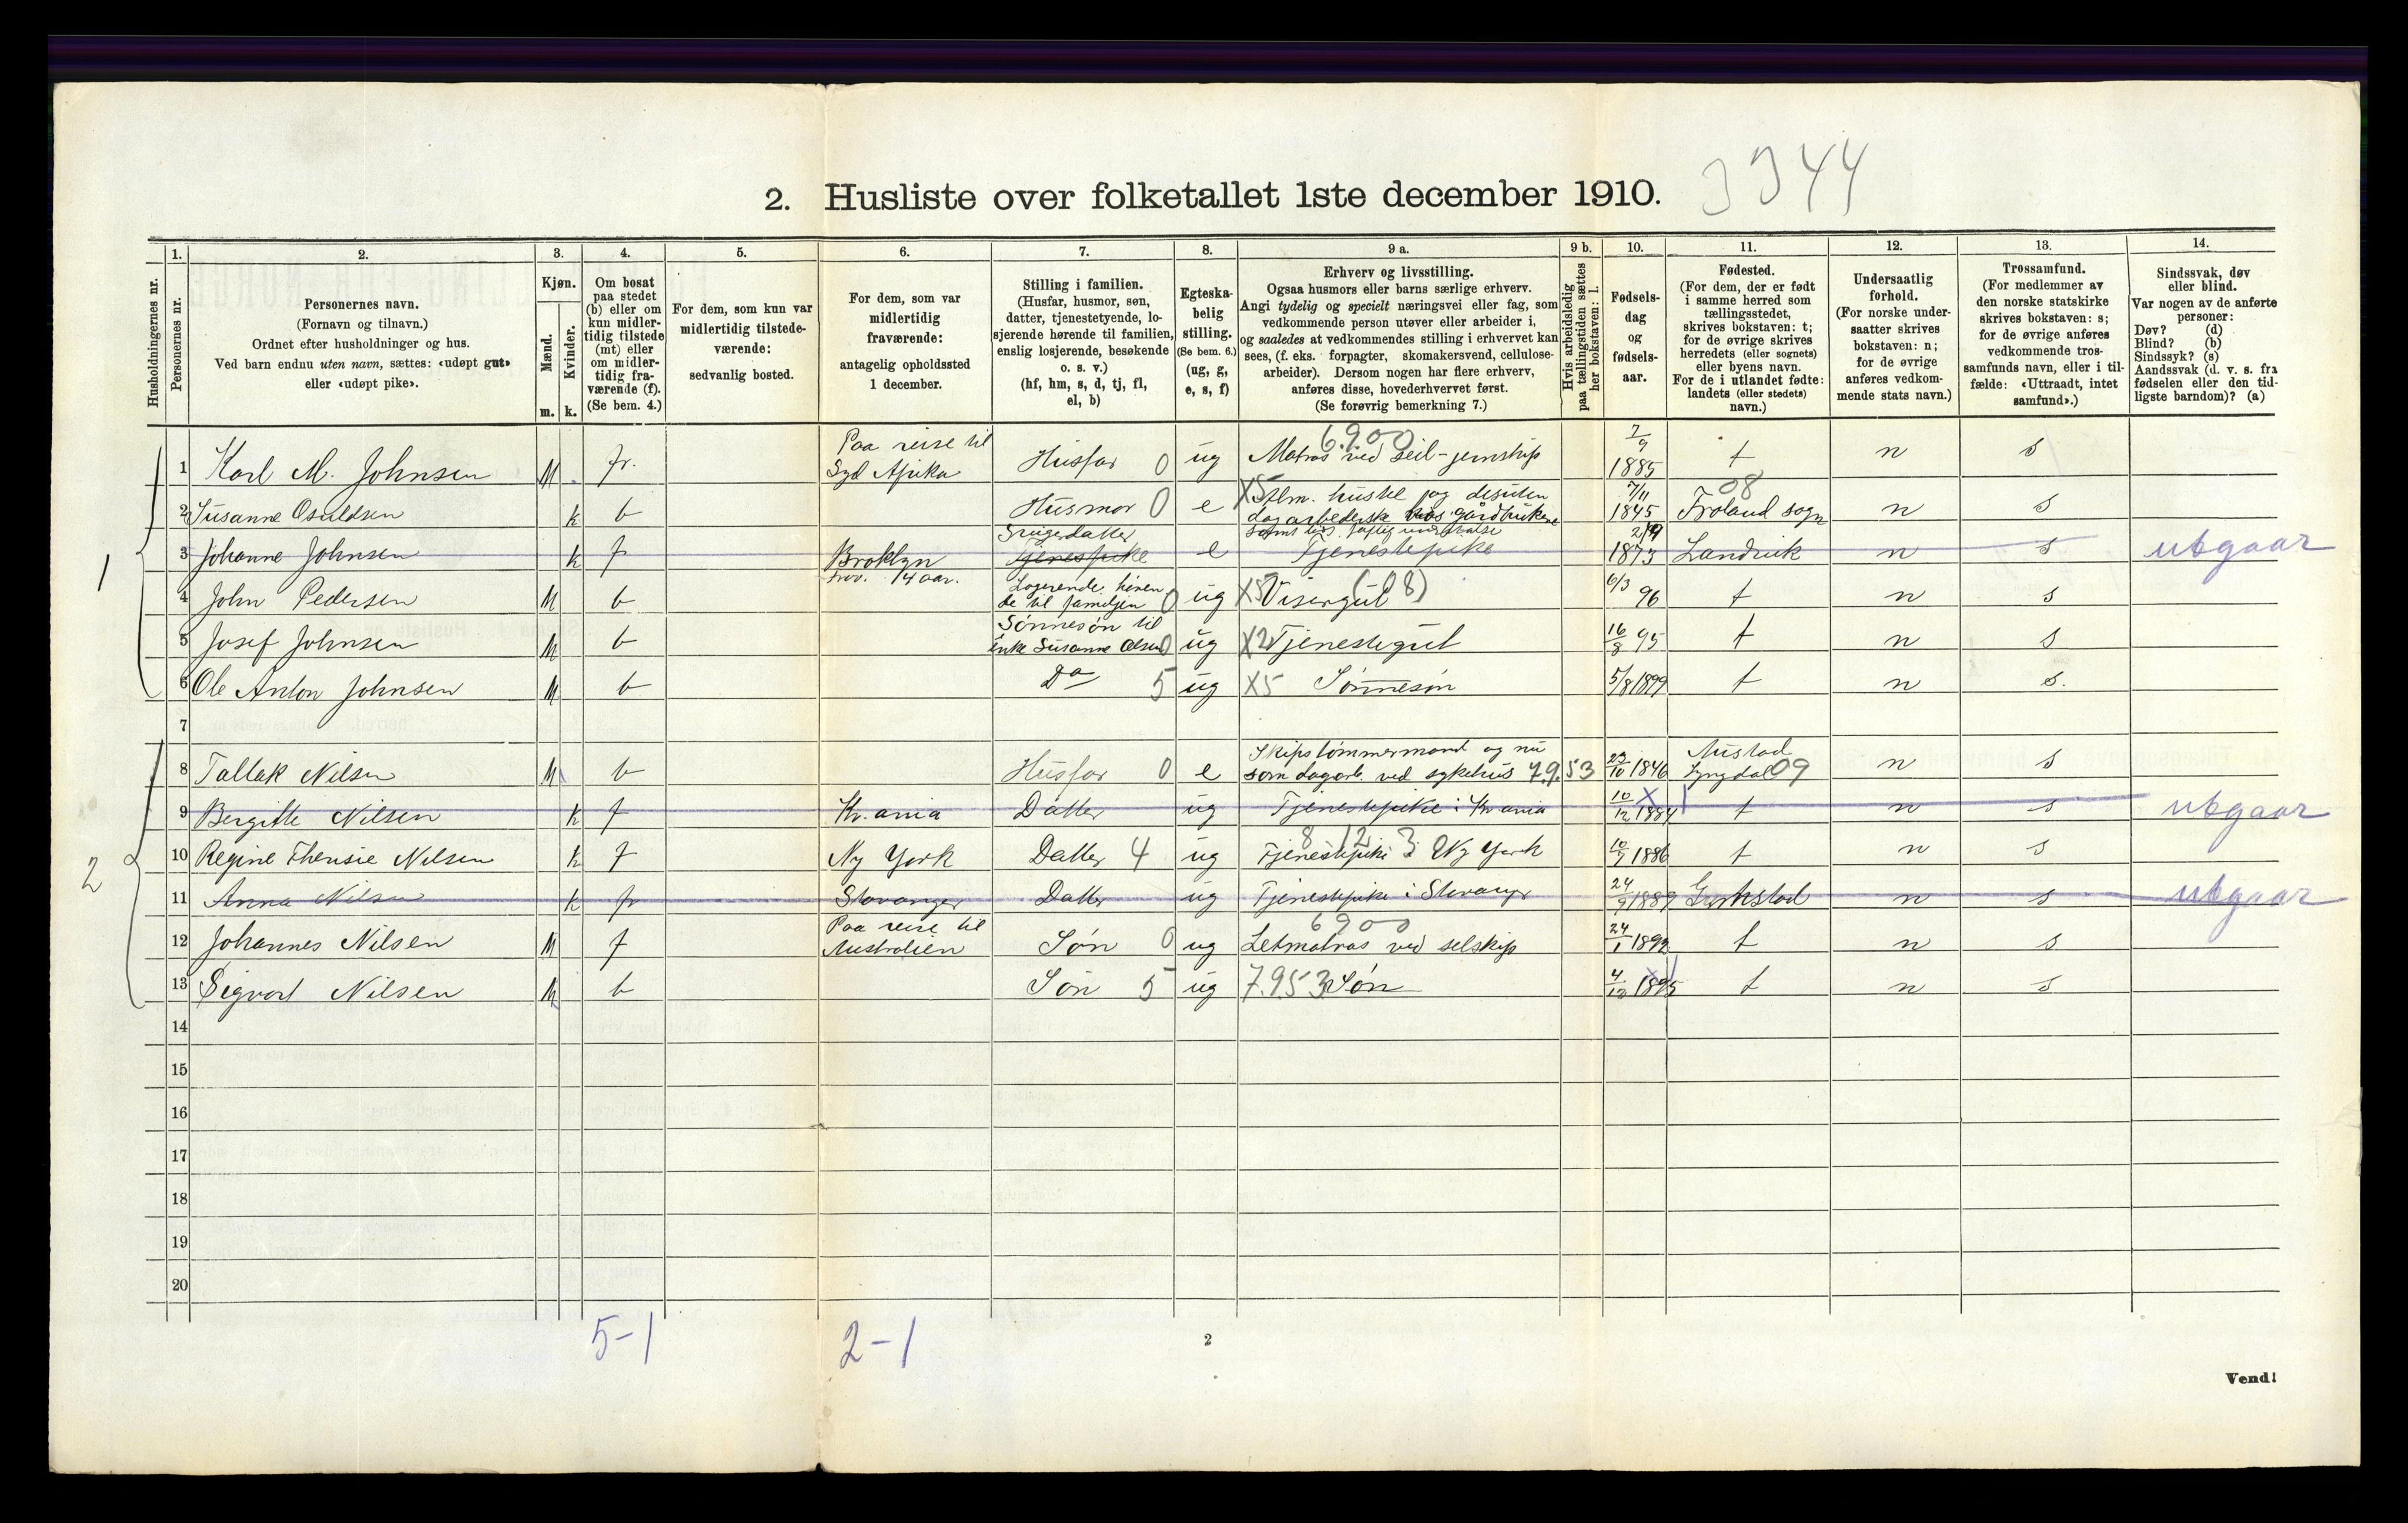 2. Husliste over folketallet 1ste december 1910. 3344
Husholdningernes nr.
1. Personernes nr.
2. Personernes navn. (Fornavn og tilnavn.) Ordnet efter husholdninger og hus. Ved barn endnu uten navn, sættes: «udøpt gut» eller «udøpt pike».
3. Kjøn. Mænd. m. Kvinder. k.
4. Om bosat paa stedet (b) eller om kun midlertidig tilstede (mt) eller om midlertidig fraværende (f). (Se bem. 4.)
5. For dem, som kun var midlertidig tilstedeværende: sedvanlig bosted.
6. For dem, som var midlertidig fraværende: antagelig opholdssted 1 december.
7. Stilling i familien. (Husfar, husmor, søn, datter, tjenestetyende, losjerende hørende til familien, enslig losjerende, besøkende o. s. v.) (hf, hm, s, d, tj, fl, el, b)
8. Egteskabelig stilling. (Se bem. 6.) (ug, g, e, s, f)
9 a. Erhverv og livsstilling. Ogsaa husmors eller barns særlige erhverv. Angi tydelig og specielt næringsvei eller fag, som vedkommende person utøver eller arbeider i, og saaledes at vedkommendes stilling i erhvervet kan sees, (f. eks. forpagter, skomakersvend, cellulosearbeider). Dersom nogen har flere erhverv, anføres disse, hovederhvervet først. (Se forøvrig bemerkning 7.)
9 b. Hvis arbeidsledig paa tællingstiden sættes her bokstaven: l.
10. Fødselsdag og fødselsaar.
11. Fødested. (For dem, der er født i samme herred som tællingsstedet, skrives bokstaven: t; for de øvrige skrives herredets (eller sognets) eller byens navn. For de i utlandet fødte: landets (eller stedets) navn.)
12. Undersaatlig forhold. (For norske undersaatter skrives bokstaven: n; for de øvrige anføres vedkommende stats navn.)
13. Trossamfund. (For medlemmer av den norske statskirke skrives bokstaven: s; for de øvrige anføres vedkommende trossamfunds navn, eller i tilfælde: «Uttraadt, intet samfund».)
14. Sindssvak, døv eller blind. Var nogen av de anførte personer: Døv? (d) Blind? (b) Sindssyk? (s) Aandssvak (d. v. s. fra fødselen eller den tidligste barndom)? (a)
1
1 Karl M. Johnsen M fr. Paa reise til Syd Afrika Husfar 0 ug 6.900 Matros ved seil-jernskip 7/9 1885 t n s
2 Susanne Osuldsen k b Husmor 0 e X5 dagarbederske hos gårdbrukere 7/11 1845 08 Froland sogn n s
3 Johanne Johnsen k f Broklyn Svigerdatter Tjenestpike e Tjenestepike 2/9 1873 Landvik n s utgaar
4 John Pedersen M b Logerende hørende til familjen 0 ug X5 Visergut (-08) 6/3 96 t n s
5 Josef Johnsen M b Sønnesøn til Enke Susanne Olsen 0 ug X2 Tjenestegut 16/8 95 t n s
6 Ole Anton Johnsen M b Do 5 ug X5 Sønnesøn 5/8 1899 t n s.
7
2
8 Tallak Nilsen M b Husfar 0 e Skipstømmermand og nu som dagarb. ved sykehus 7.9.53 23/10 1846 Austad Lyngdal 09 n s
9 Bergitte Nilsen k f Kr.ania Datter ug Tjenestepike i Kr.ania 10/12 1884 t n s utgaar
10 Regine Theresie Nilsen k f Ny York Datter 4 ug 8 12 3 Tjenestepike i Ny York 10/7 1886 t n s
11 Anna Nilsen k fr Stavanger Datter ug Tjenestepike i Stavanger 24/9 1889 Grimstad n s utgaar
12 Johannes Nilsen M f Paa reise til Australien Søn 0 ug 6900 Letmatros ved selskip 24/1 1892 t n s
13 Sigvart Nilsen M b Søn 5 ug 7.953 Søn 4/12 1895 t n s
14
15
16
17
18
19
20
5-1 2-1
2
Vend!